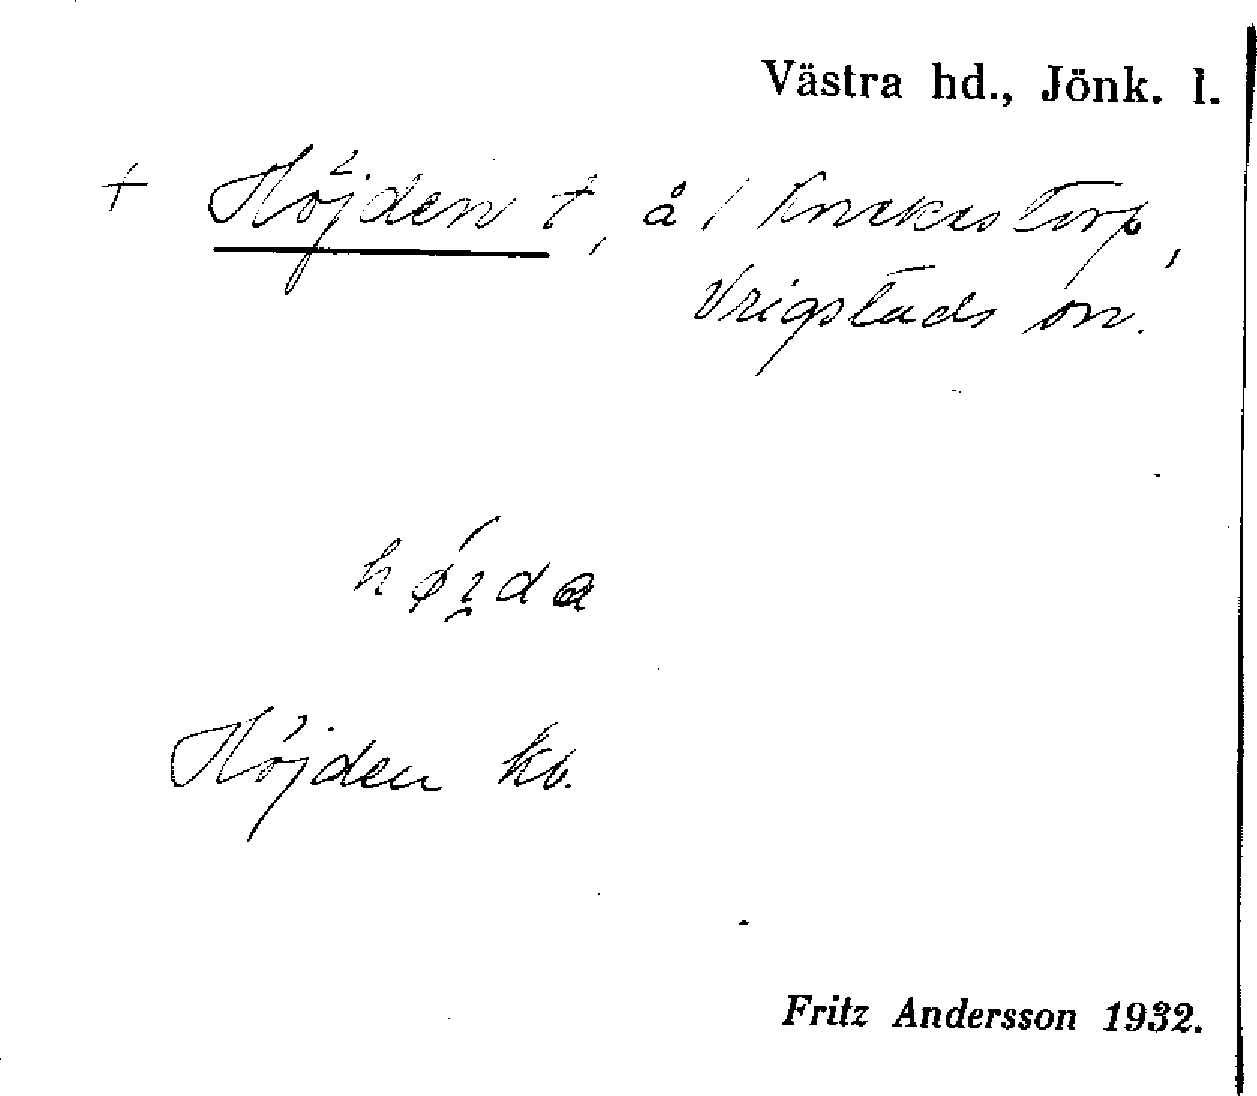 Västra hd., Jönk. l.
+ Höjden t, å 1 Knekestorp,
Vrigstads sn.
Höjden kb.
Fritz Andersson 1932.